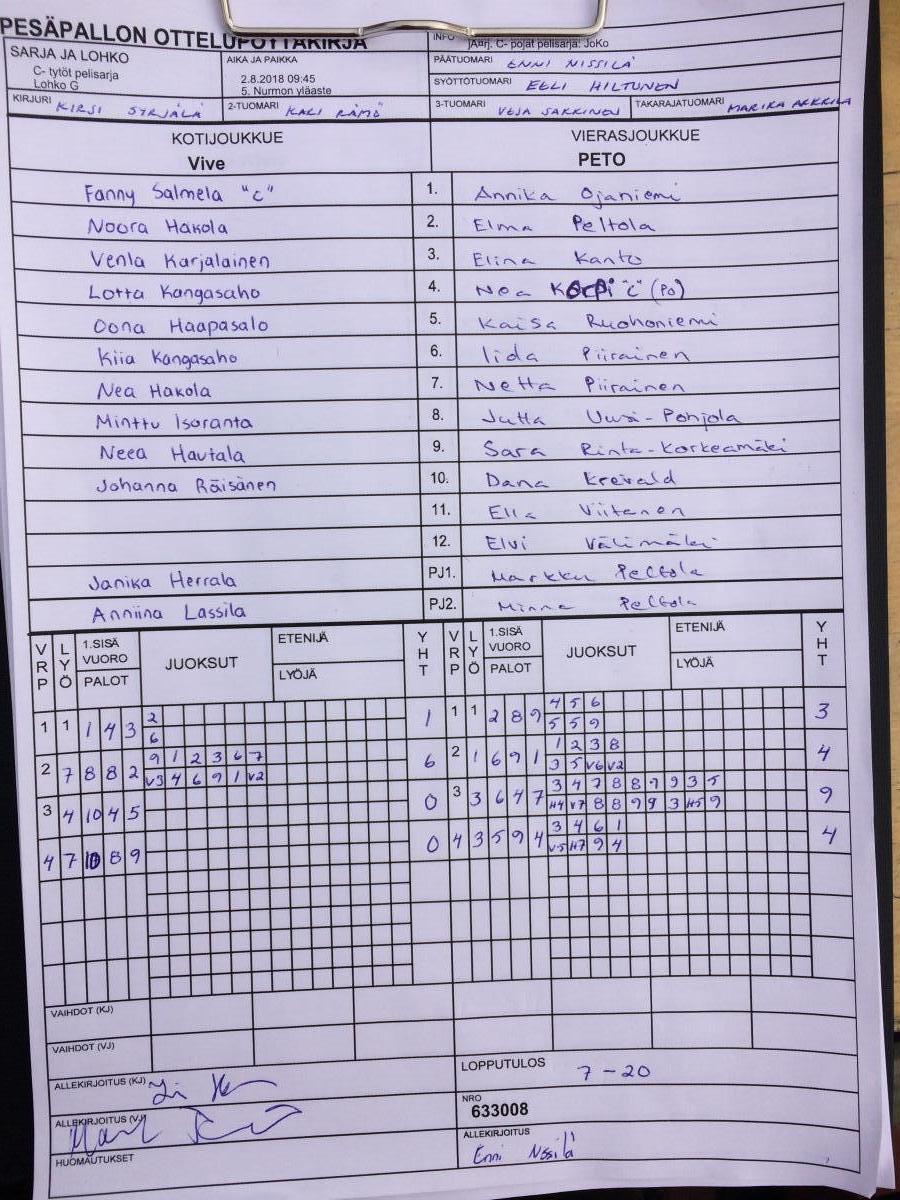 PESÄPALLON OTTELUPÖYTÄKIRJA
INFO
Järj. C- pojat pelisarja: JoKo
SARJA JA LOHKO
C- tytöt pelisarja
Lohko G
AIKA JA PAIKKA
2.8.2018 09:45
5. Nurmon yläaste
PÄÄTUOMARI ENNI NISSILÄ
SYÖTTÖTUOMARI EELI HILTUNEN
KIRJURI KIRSI SYRJÄLÄ
2-TUOMARI KARI RÄMÖ
3-TUOMARI VEJA SAKKINEN
TAKARAJATUOMARI MARIKA ARKKILA
KOTIJOUKKUE
Vive
VIERASJOUKKUE
PETO
Fanny Salmela "c" 1. Annika Ojaniemi
Noora Hakola 2. Elma Peltola
Venla Karjalainen 3. Elina Kanto
Lotta Kangasaho 4. Noa Korpi "c" (PO)
Oona Haapasalo 5. Kaisa Ruohoniemi
Kiia Kangasaho 6. Iida Piirainen
Nea Hakola 7. Netta Piirainen
Minttu Isoranta 8. Jutta Uusi-Pohjola
Neea Hautala 9. Sara Rinta-Korkeamäki
Johanna Räisänen 10. Dana Kreivald
11. Ella Viitanen
12. Elvi Välimäki
Janika Herrala PJ1. Markku Peltola
Anniina Lassila PJ2. Minna Peltola
VRP LYÖ 1.SISÄ VUORO PALOT JUOKSUT ETENIJÄ LYÖJÄ YHT VRP LYÖ 1.SISÄ VUORO PALOT JUOKSUT ETENIJÄ LYÖJÄ YHT
1 1 1 4 3 2 1 1 1 2 8 9 4 5 6 3
6 5 5 9
2 7 8 8 2 9 1 2 3 6 7 6 2 1 6 9 1 1 2 3 8 4
V3 4 6 9 1 V2 3 5 V6 V2
3 4 10 4 5 0 3 3 6 4 7 3 4 7 8 8 9 9 3 5 9
H4 V7 8 8 9 9 3 H5 9
4 7 10 8 9 0 4 3 5 9 4 3 4 6 1 4
V5 H7 9 4
VAIHDOT (KJ)
VAIHDOT (VJ)
ALLEKIRJOITUS (KJ)
LOPPUTULOS 7-20
ALLEKIRJOITUS (VJ)
NRO
633008
HUOMAUTUKSET
ALLEKIRJOITUS
Enni Nissilä